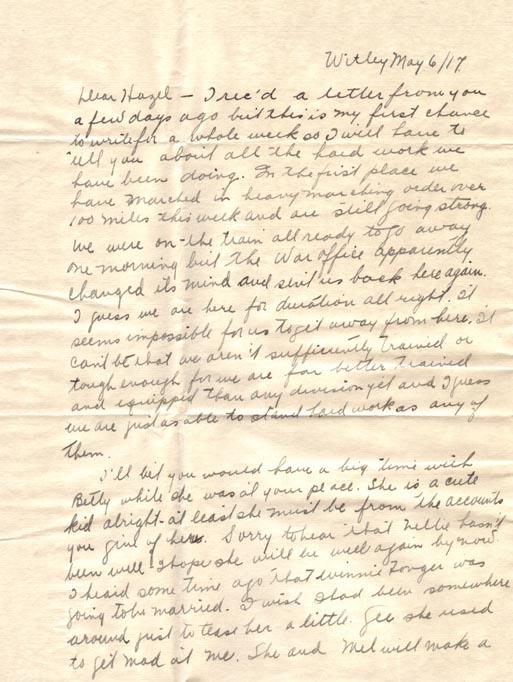 Witley May 6/17
Dear Hazel - I rec'd a letter from you
a few days ago but this is my first chance
to write for a whole week so I will have to
tell you about all the hard work we
have been doing. In the first place we
have marched in heavy marching order over
100 miles this week and are still going strong.
We were on the train all ready to go away
one morning but the War office apparently
changed its mind and sent us back here again.
I guess we are here for duration all right. It
seems impossible for us to get away from here. It
can't be that we aren't sufficiently trained or
tough enough for we are far better trained
and equipped than any division yet and I guess
we are just as able to stand hard work as any of
them.
I'll bet you would have a big time with
Betty while she was at your place. She is a cute
kid alright - at least she must be from the accounts
you give of her. Sorry to hear that Nellie hasn't
been well. I hope she will be well again by now.
I heard some time ago that Winnie was
going to be married. I wish I had been somewhere
around just to tease her a little. Gee she used
to get mad at me. She and Mel will make a